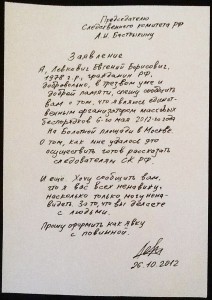 Председателю
Следственного комитета РФ
А.И. Бастрыкину
Заявление
Я, Левкович Евгений Борисович,
1978 г.р., гражданин РФ,
добровольно, в трезвом уме и
доброй памяти, спешу сообщить
вам о том, что являюсь единст-
венным организатором массовых
беспорядков 6-го мая 2012-го года
на Болотной площади в Москве.
О том, как мне удалось это
осуществить готов рассказать
следователям СК РФ.
И еще. Хочу сообщить вам,
что я вас всех ненавижу,
насколько только могу нена-
видеть. За то, что вы делаете
с людьми.
Прошу оформить как явку
с повинной.
26.10.2012